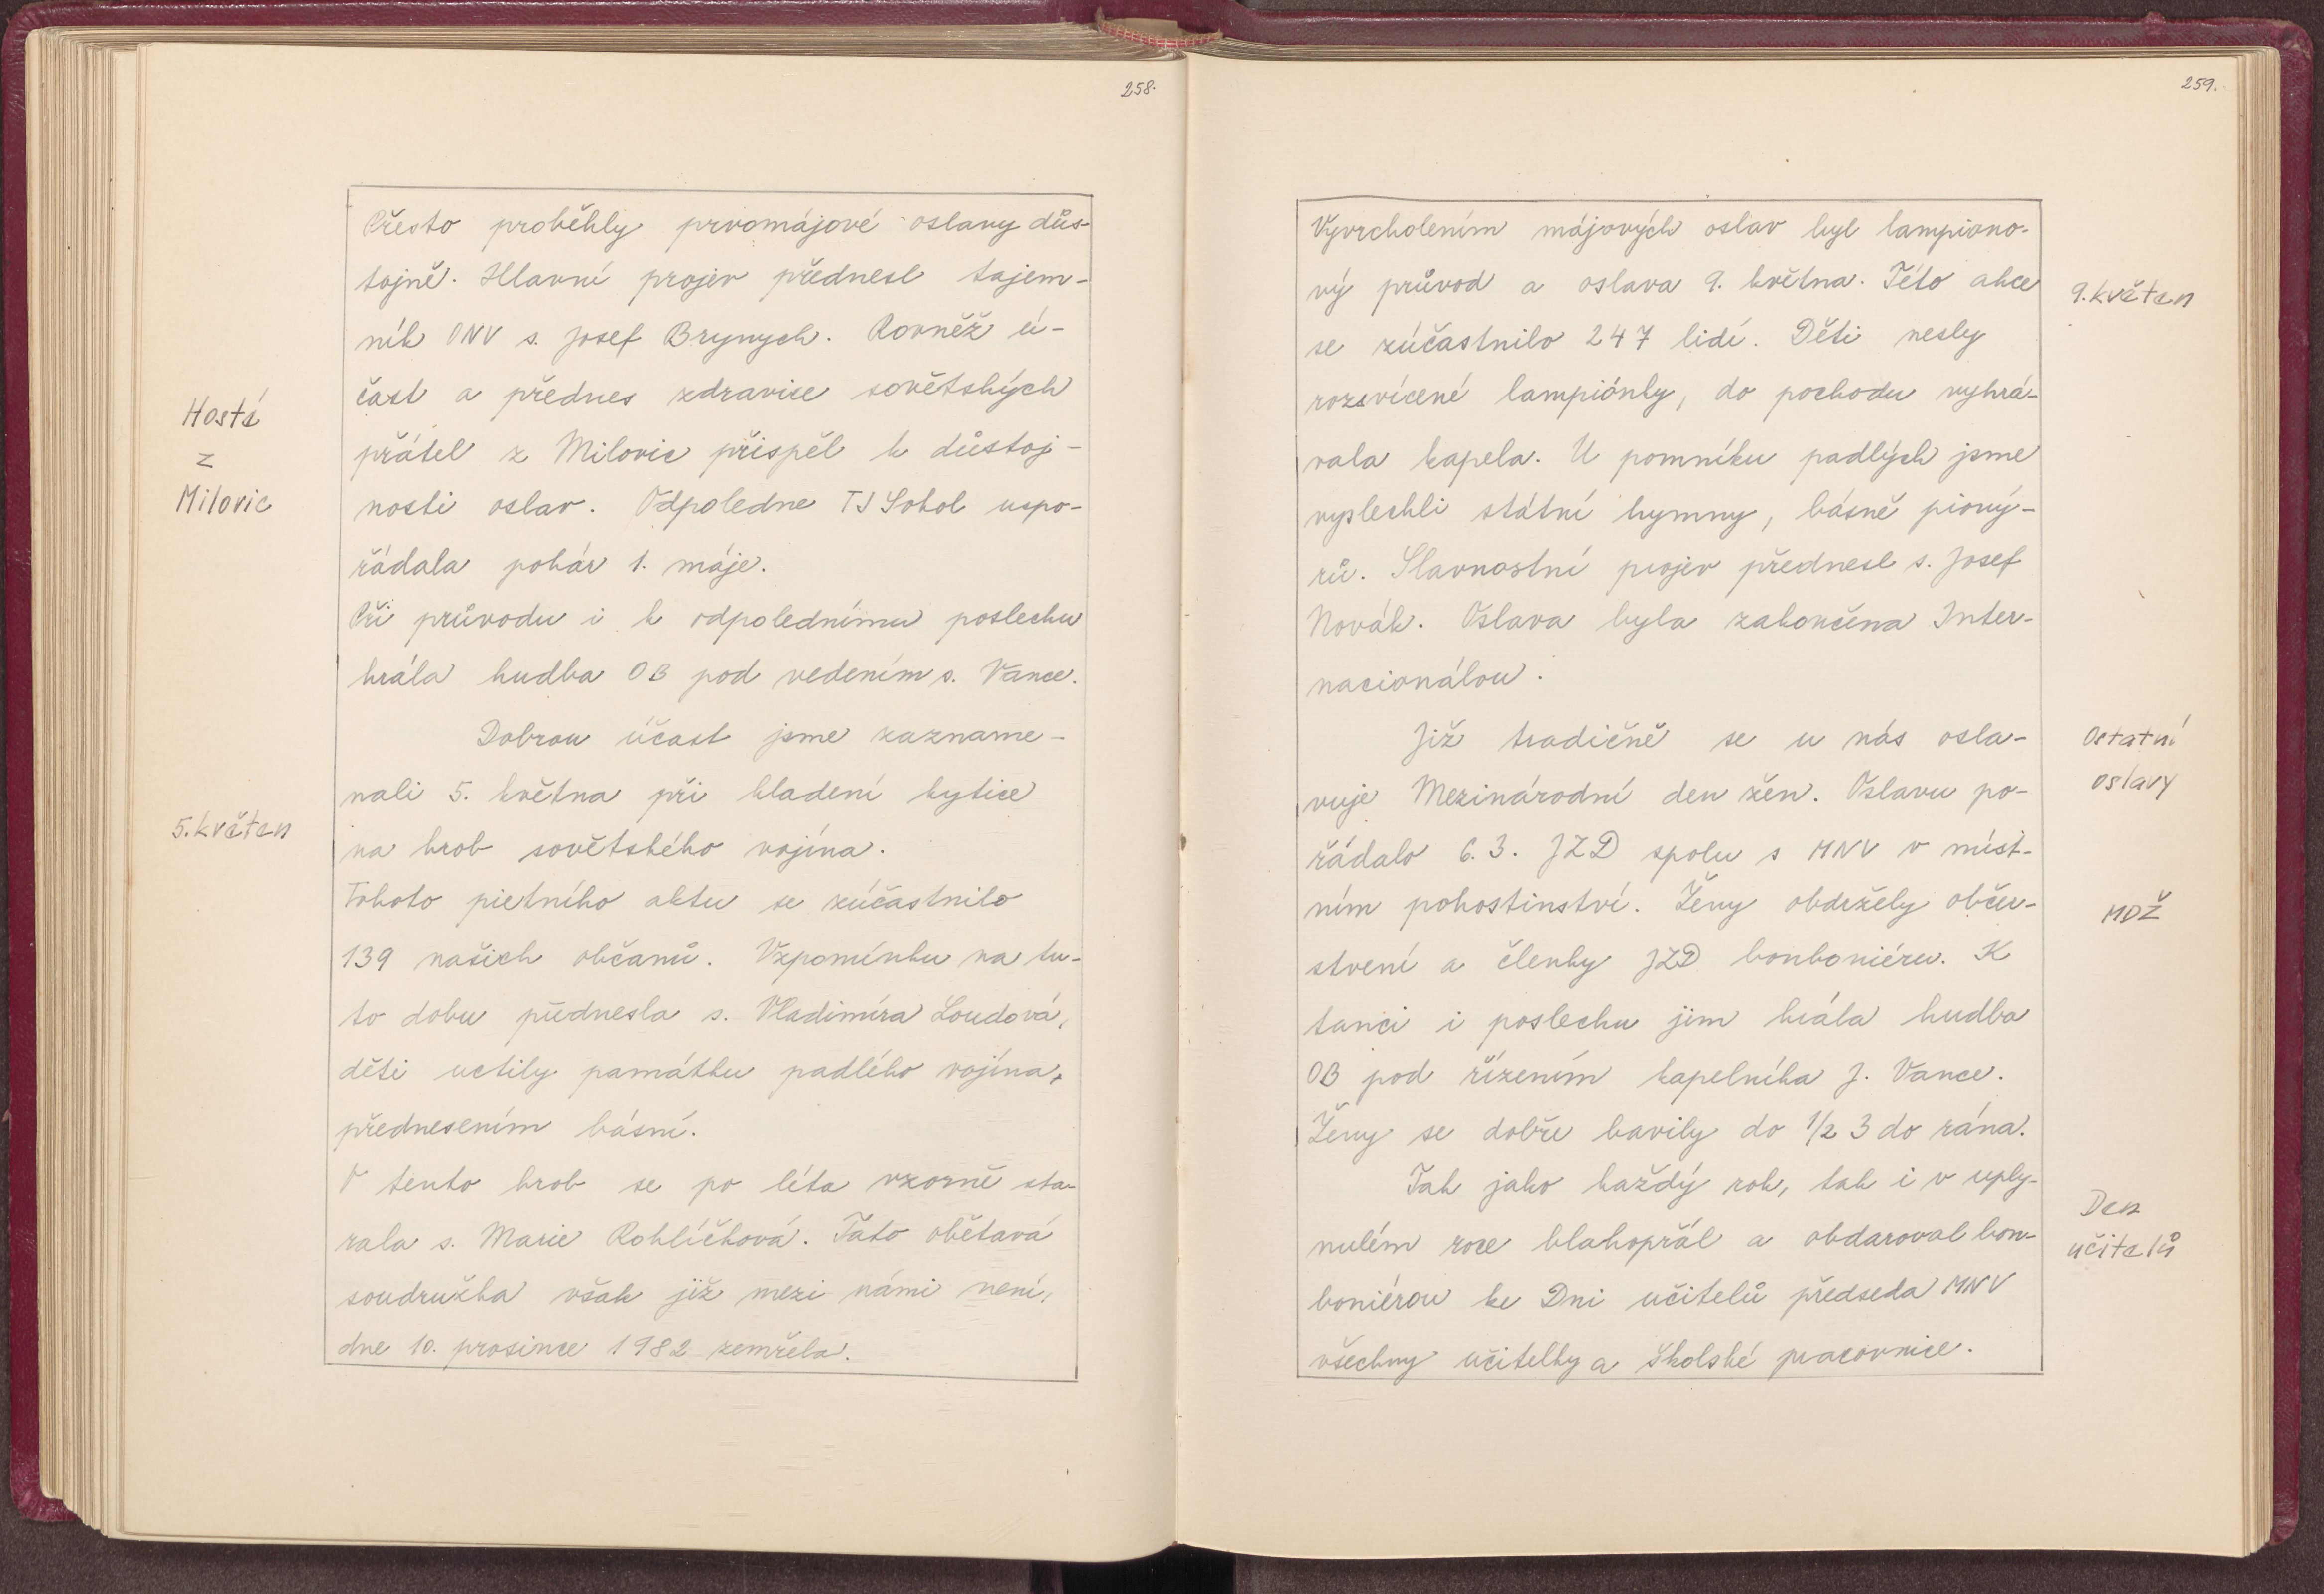 258.
Přesto proběhly prvomájové oslavy důs-
tojně. Hlavní projev přednesl tajem-
ník ONV s. Josef Brynych. Rovněž ú-
čast a přednes zdravice sovětských
Hosté
přátel z Milovic přispěl k důstoj-
z
Milovic
nosti oslav. Odpoledne TJ Sokol uspo-
řádala pohár 1. máje.
Při průvodu i k odpolednímu poslechu
hrála hudba OB pod vedením s. Vance.
Dobrou účast jsme zazname-
nali 5. května při kladení kytice
5. květen
na hrob sovětského vojína.
Tohoto pietního aktu se zúčastnilo
139 našich občanů. Vzpomínku na tu-
to dobu přednesla s. Vladimíra Loudová,
děti uctily památku padlého vojína,
přednesením básní.
V tento hrob se po léta vzorně sta-
rala s. Marie Rohlíčková. Tato obětavá
soudružka však již mezi námi není,
dne 10. prosince 1982 zemřela.
259.
Vyvrcholením májových oslav byl lampiono-
vý průvod a oslava 9. května. Této akce
9. květen
se zúčastnilo 247 lidí. Děti nesly
rozsvícené lampiónky, do pochodu vyhrá-
vala kapela. U pomníku padlých jsme
vyslechli státní hymny, básně pioný-
rů. Slavnostní projev přednesl s. Josef
Novák. Oslava byla zakončena Inter-
nacionálou.
Již tradičně se u nás osla-
Ostatní
oslavy
vuje Mezinárodní den žen. Oslavu po-
řádalo 6. 3. JZD spolu s MNV v míst-
ním pohostinství. Ženy obdržely občer-
MDŽ
stvení a členky JZD bonboniéru. K
tanci i poslechu jim hrála hudba
OB pod řízením kapelníka J. Vance.
Ženy se dobře bavily do 1/2 3 do rána.
Tak jako každý rok, tak i v uply-
Den
učitelů
nulém roce blahopřál a obdaroval bon-
boniérou ke Dni učitelů předseda MNV
všechny učitelky a školské pracovnice.